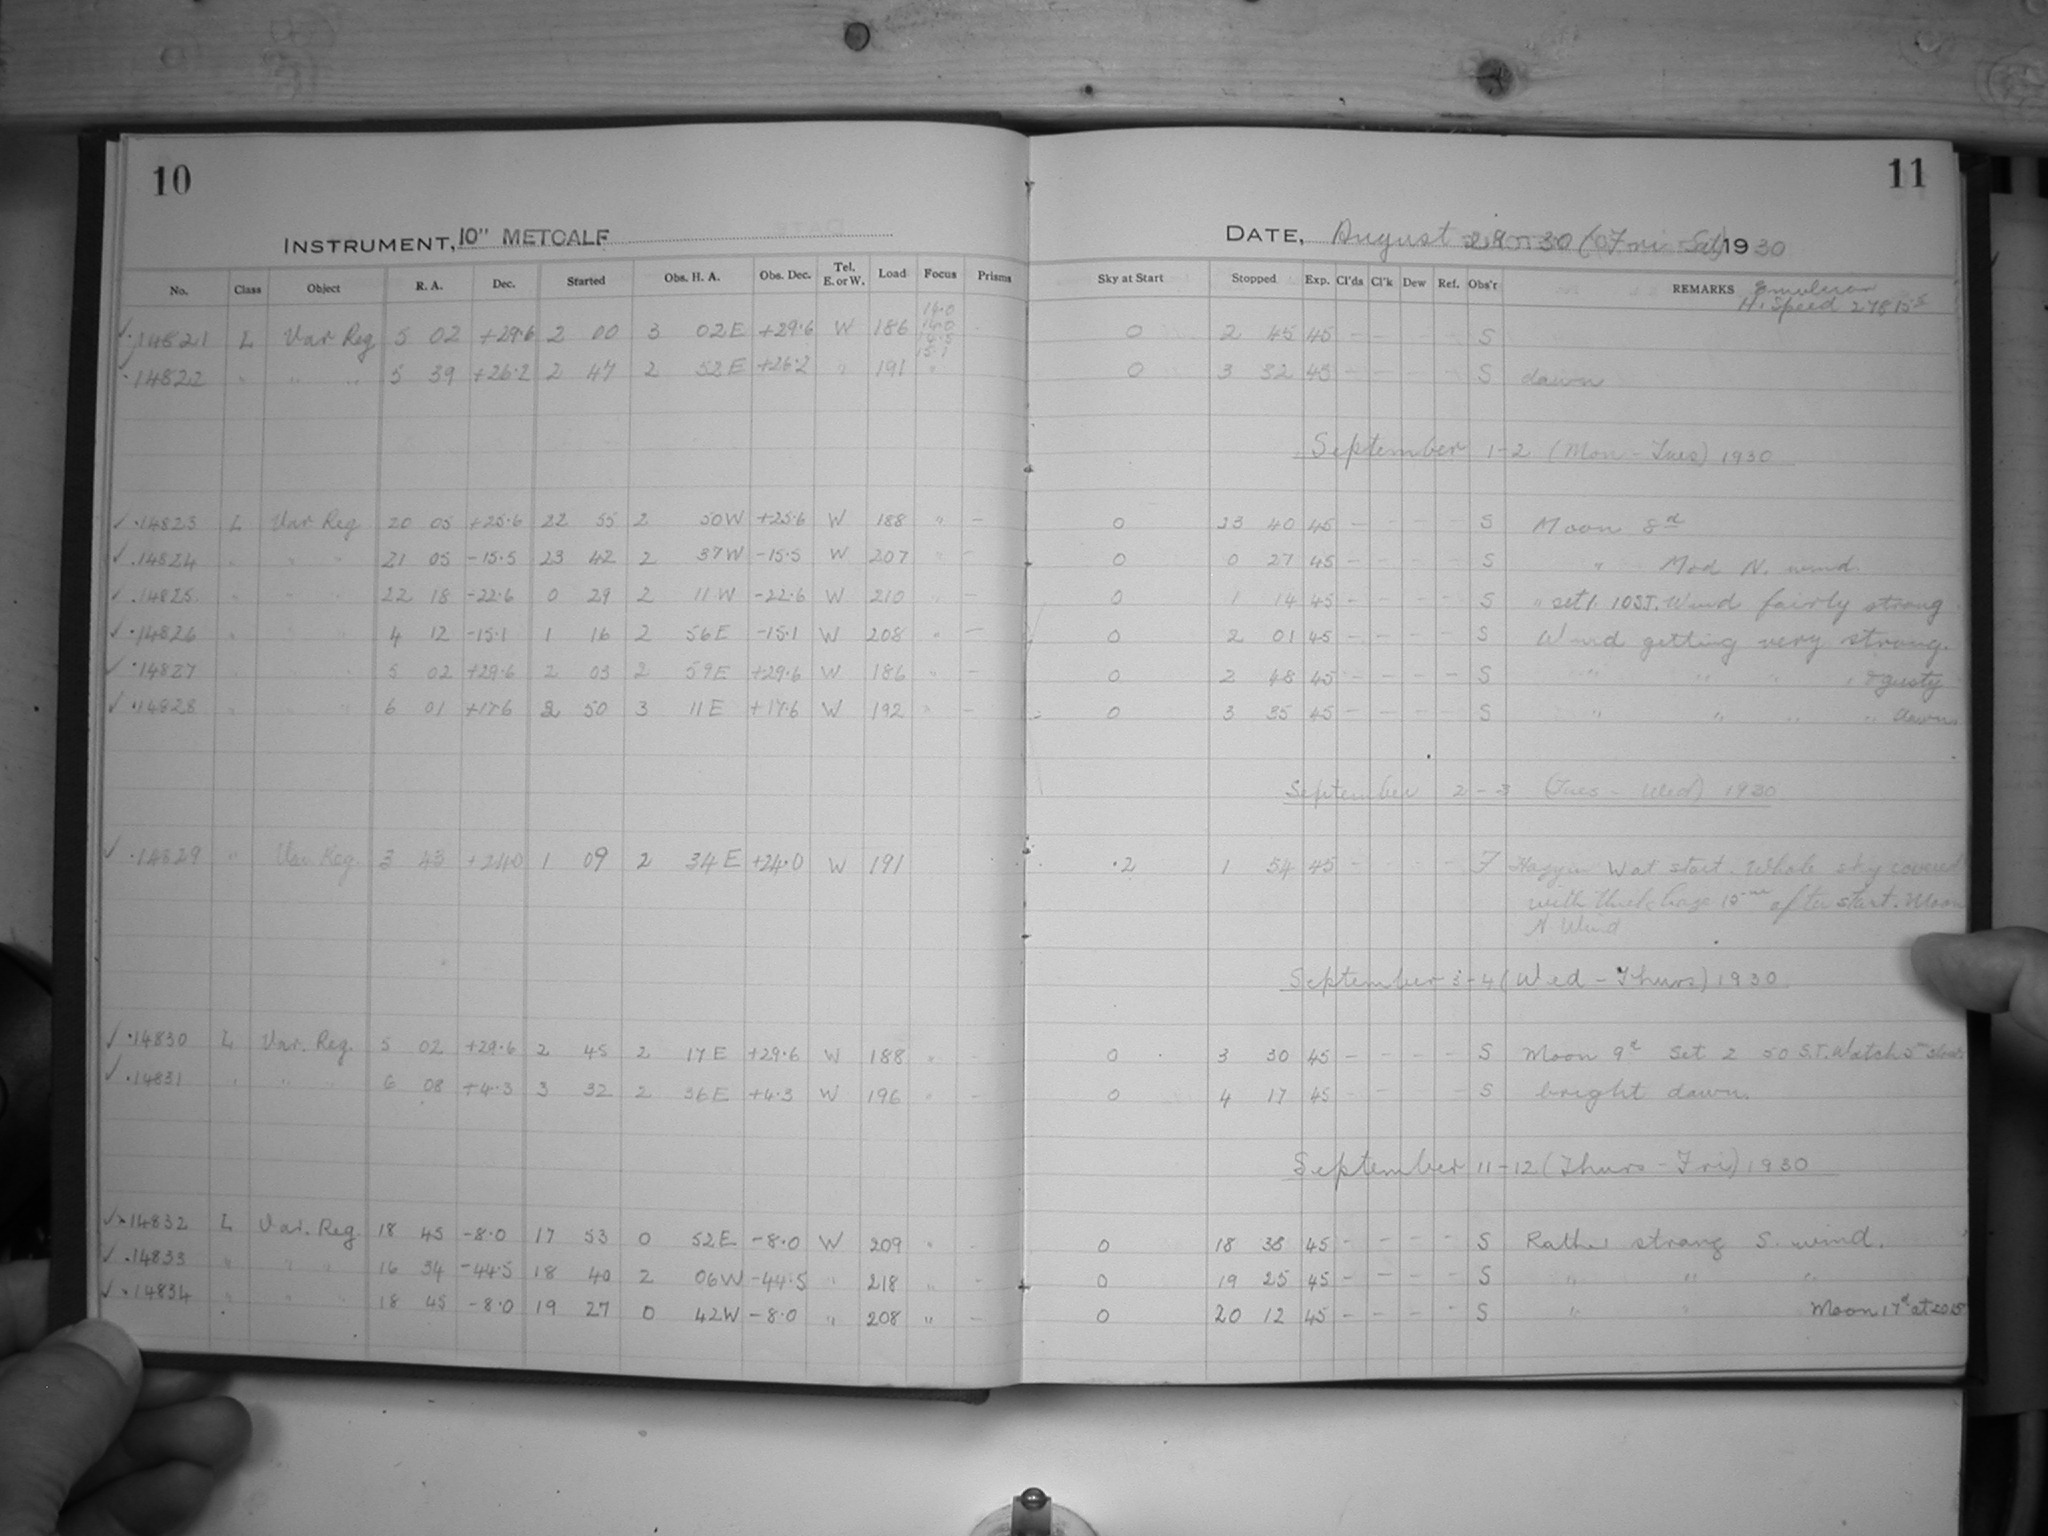 10
11
INSTRUMENT, 10" METCALF
DATE, August 29-30 (Fri Sat) 1930
No. Class Object R. A. Dec. Started Obs. H. A. Obs. Dec. Tel. E. or W. Load Focus Prisms Sky at Start Stopped Exp. Cl'ds Cl'k Dew Ref. Obs'r REMARKS Emulsion
Hi. Speed 27815
14.0
14.0
15.1
✓ 14821 L Var Reg 5 02 +29.6 2 00 3 02E +29.6 W 186 0 2 45 45 – – – – S
14822 " " " 5 39 +26.2 2 47 2 52E +26.2 " 191 " 0 3 32 45 – – – – S dawn
September 1-2 (Mon-Tues) 1930
✓ 14823 L Var Reg 20 05 +25.6 22 55 2 50W +25.6 W 188 " – 0 23 40 45 – – – – S Moon 8d
✓ 14824 " " " 21 05 -15.5 23 42 2 37W -15.5 W 207 " – 0 0 27 45 – – – – S " Mod N. wind.
✓ 14825 " " " 22 18 -22.6 0 29 2 11W -22.6 W 210 " – 0 1 14 45 – – – – S " set 1 10 S.T. Wind fairly strong
✓ 14826 " " " 4 12 -15.1 1 16 2 56E -15.1 W 208 " – 0 2 01 45 – – – – S Wind getting very strong.
✓ 14827 " " " 5 02 +29.6 2 03 2 59E +29.6 W 186 " – 0 2 48 45 – – – – S " " " " & gusty
✓ 14828 " " " 6 01 +17.6 2 50 3 11E +17.6 W 192 " – 0 3 35 45 – – – – S " " " " dawn
September 2-3 (Tues-Wed) 1930
✓ 14829 " Var Reg. 3 43 +24.0 1 09 2 34E +24.0 W 191 .2 1 54 45 – – – – F W at start. Whole sky covered
with thick haze after start. Moon
N Wind
September 3-4 (Wed-Thurs) 1930
✓ 14830 L Var. Reg. 5 02 +29.6 2 45 2 17E +29.6 W 188 " – 0 3 30 45 – – – – S Moon 9d Set 2 50 S.T. Watch 5s slow
✓ 14831 " " " 6 08 +4.3 3 32 2 36E +4.3 W 196 " – 0 4 17 45 – – – – S bright dawn.
September 11-12 (Thurs-Fri) 1930
✓ 14832 L Var. Reg. 18 45 -8.0 17 53 0 52E -8.0 W 209 " – 0 18 38 45 – – – – S Rather strong S. wind.
✓ 14833 " " " 16 34 -44.5 18 40 2 06W -44.5 " 218 " – 0 19 25 45 – – – – S " " "
✓ 14834 " " " 18 45 -8.0 19 27 0 42W -8.0 " 208 " – 0 20 12 45 – – – – S " " Moon 17d at 2015